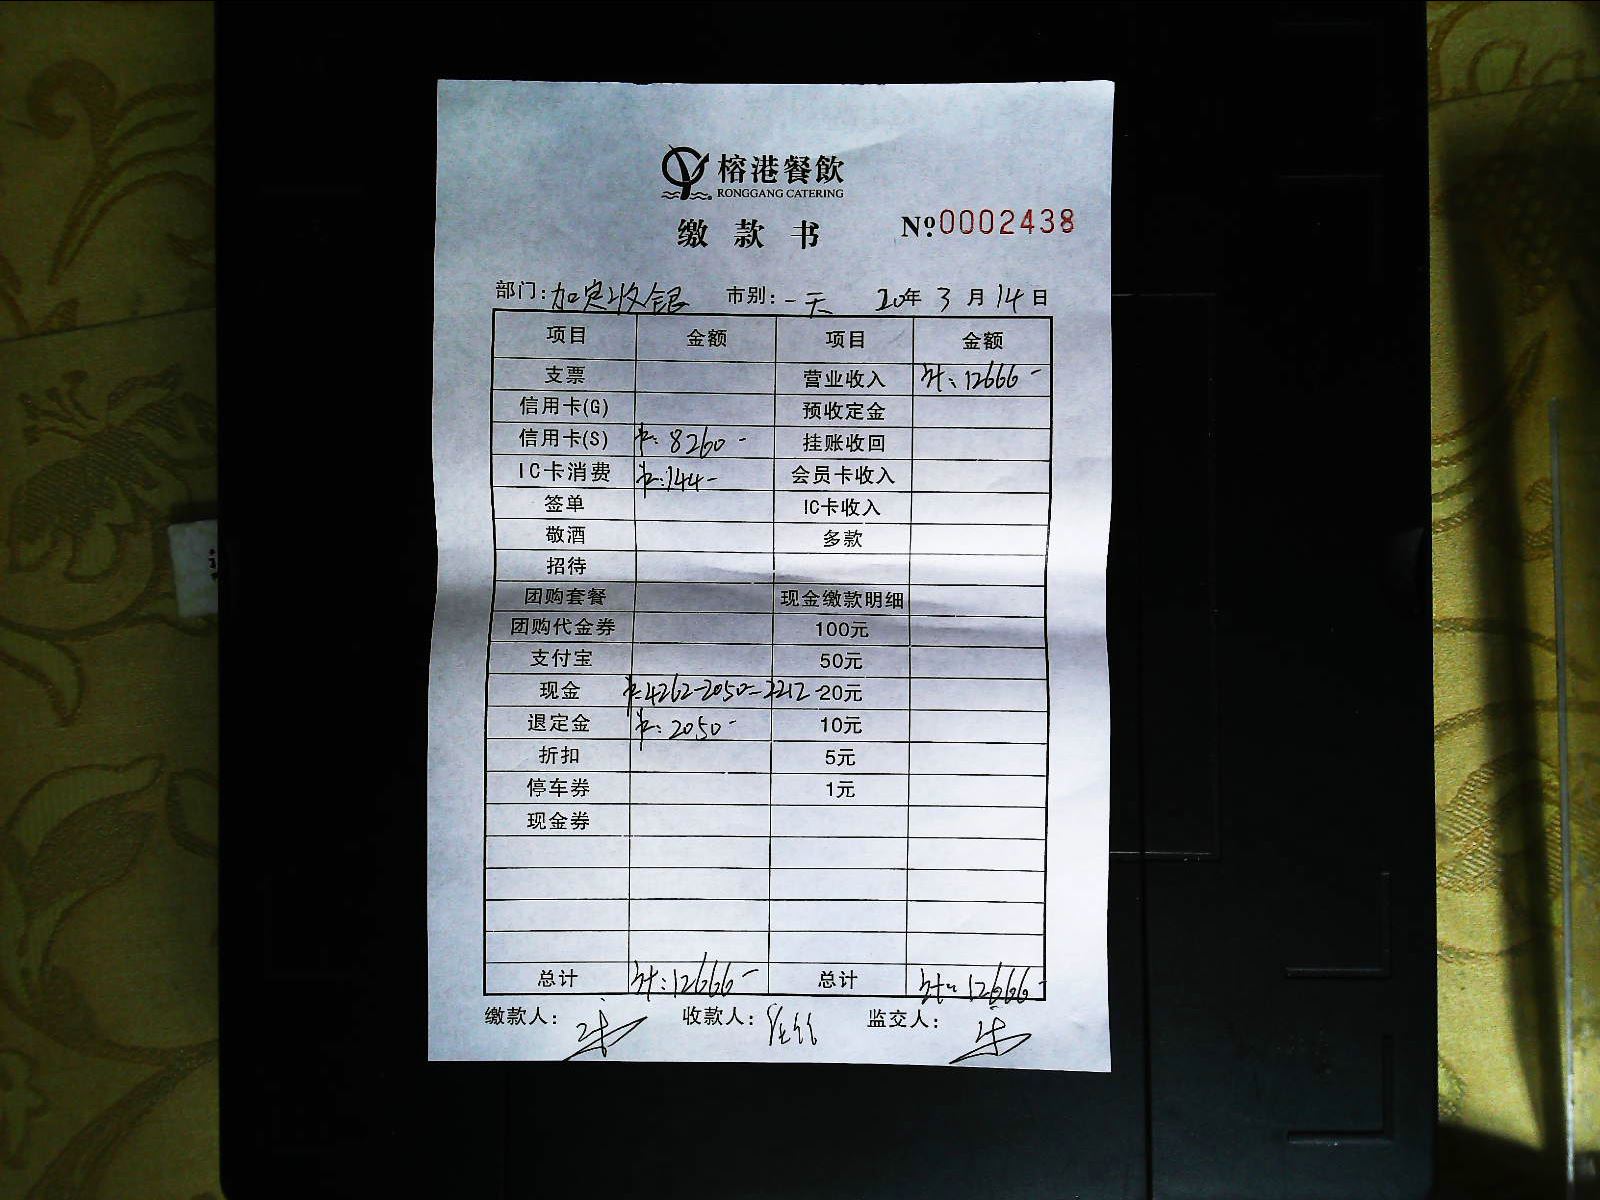 榕港餐飲
RONGGANG CATERING
缴款书 Nº 0002438
部门: 加定收银 市别: 一天 20年 3月 14日
项目 金额 项目 金额
支票 营业收入 计: 12666-
信用卡(G) 预收定金
信用卡(S) 卡: 8260- 挂账收回
IC卡消费 卡: 144- 会员卡收入
签单 IC卡收入
敬酒 多款
招待
团购套餐 现金缴款明细
团购代金券 100元
支付宝 50元
现金 卡: 4262-2050=2212- 20元
退定金 卡: 2050- 10元
折扣 5元
停车券 1元
现金券
总计 计: 12666- 总计 计: 12666-
缴款人: 收款人: 监交人: